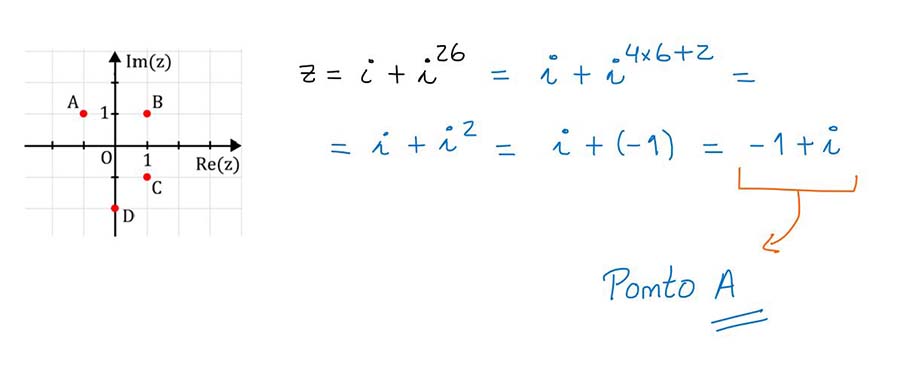 Im(z)
A
B
1
O
1
Re(z)
C
D
z = i + i^26 = i + i^4×6+2 =
= i + i^2 = i + (-1) = -1 + i
Ponto A